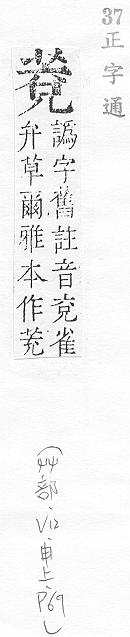 37
正字通
譌字舊註音兗雀
弁草爾雅本作
(艸部.V12.申上.P69)